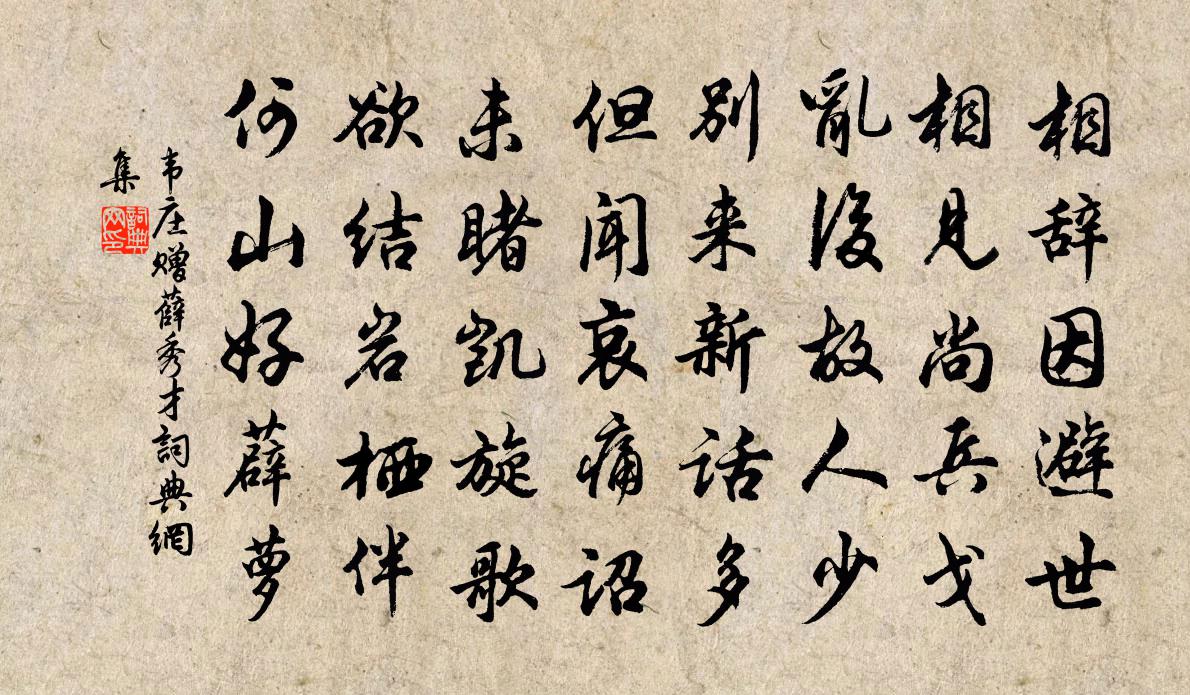 相辞因避世
相見尚兵戈
亂後故人少
别来新话多
但闻哀痛诏
未睹凯旋歌
欲结岩栖伴
何山好薜萝
韦庄赠薛秀才詞典網
集
詞典网印